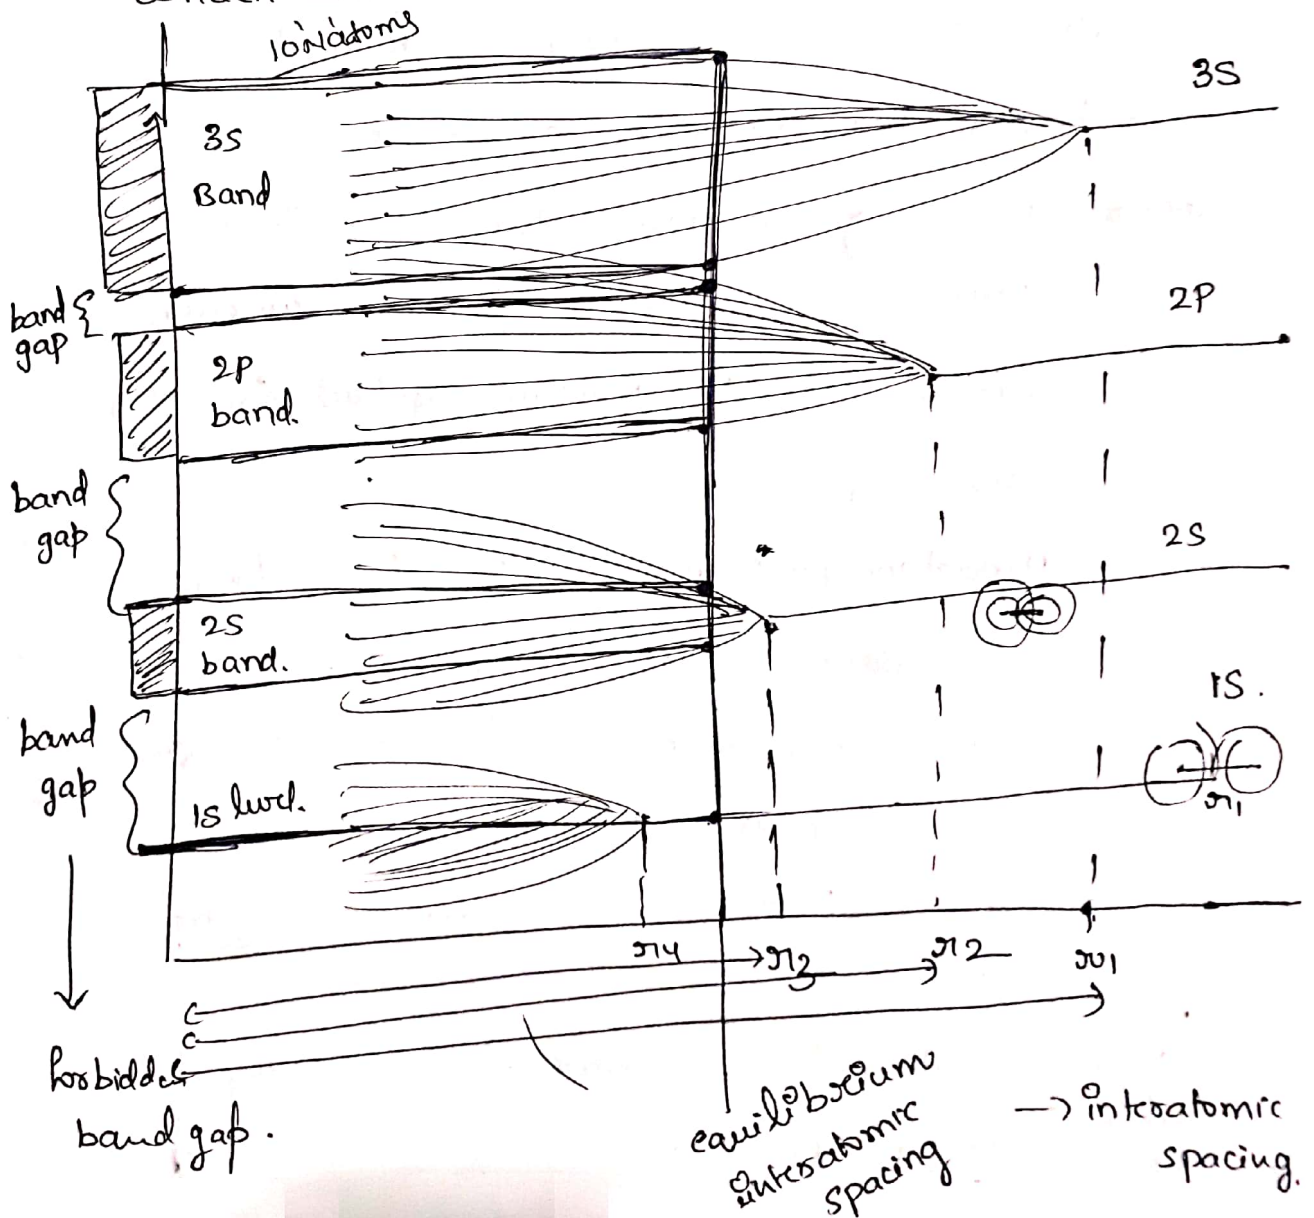 10 N atoms
3S
3S
Band
band
gap
2P
2P
band.
band
gap
2S
2S
band.
1S.
band
gap
1S level.
r1
r4
r3
r2
r1
forbidden
band gap.
equilibrium
interatomic
spacing
→ interatomic
spacing.